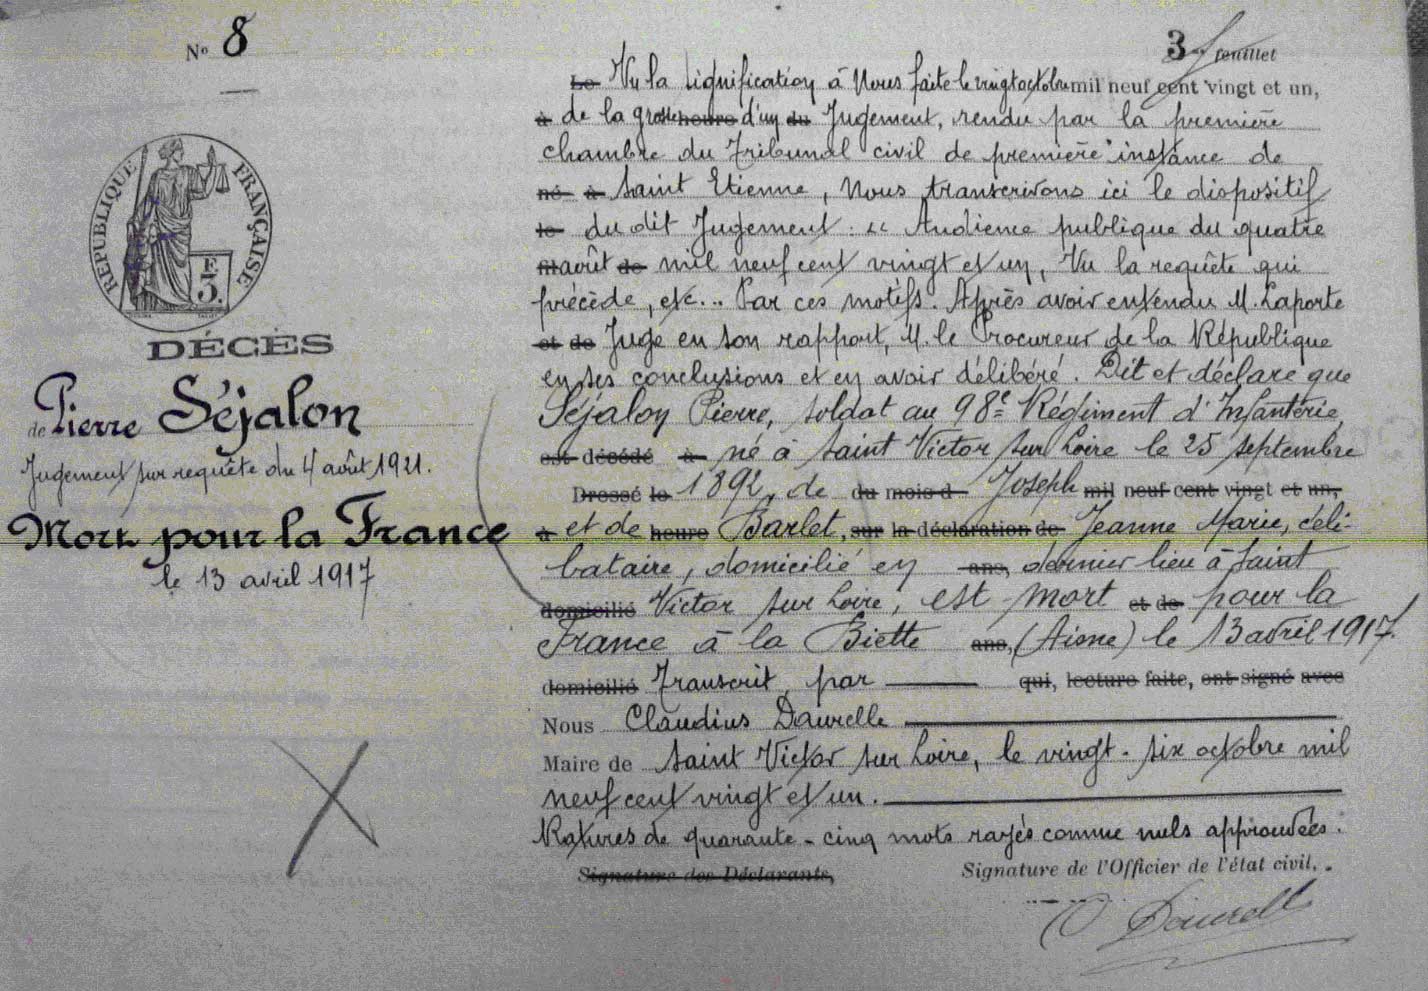 N° 8
3 feuillet
RÉPUBLIQUE FRANÇAISE
F
3.
DÉCÈS
de Pierre Séjalon
Jugement sur requête du 4 août 1921.
Mort pour la France
le 13 avril 1917
Le Vu la signification à Nous faite le vingt octobre mil neuf cent vingt et un,
à de la grosse heure d'un du Jugement, rendu par la première
chambre du Tribunal civil de première instance de
né à Saint Etienne, Nous transcrivons ici le dispositif
le du dit Jugement : " Audience publique du quatre
août de mil neuf cent vingt et un, Vu la requête qui
précède, etc... Par ces motifs. Après avoir entendu M. Laporte
et de Juge en son rapport, M. le Procureur de la République
en ses conclusions et en avoir délibéré. Dit et déclare que
Séjalon Pierre, soldat au 98e Régiment d'Infanterie,
est décédé à né à Saint Victor sur Loire le 25 septembre
Dressé le 1892, de du mois d Joseph mil neuf cent vingt et un,
à et de heure Barlet, sur la déclaration de Jeanne Marie, céli-
bataire, domicilié en ans, dernier lieu à Saint
domicilié Victor sur Loire, est mort et de pour la
France à la Biette ans, (Aisne) le 13 avril 1917.
domicilié Transcrit par qui, lecture faite, ont signé avec
Nous Claudius Daurelle
Maire de Saint Victor sur Loire, le vingt-six octobre mil
neuf cent vingt et un.
Ratures de quarante-cinq mots rayés comme nuls approuvées.
Signature des Déclarants,
Signature de l'Officier de l'état civil,
C Daurelle